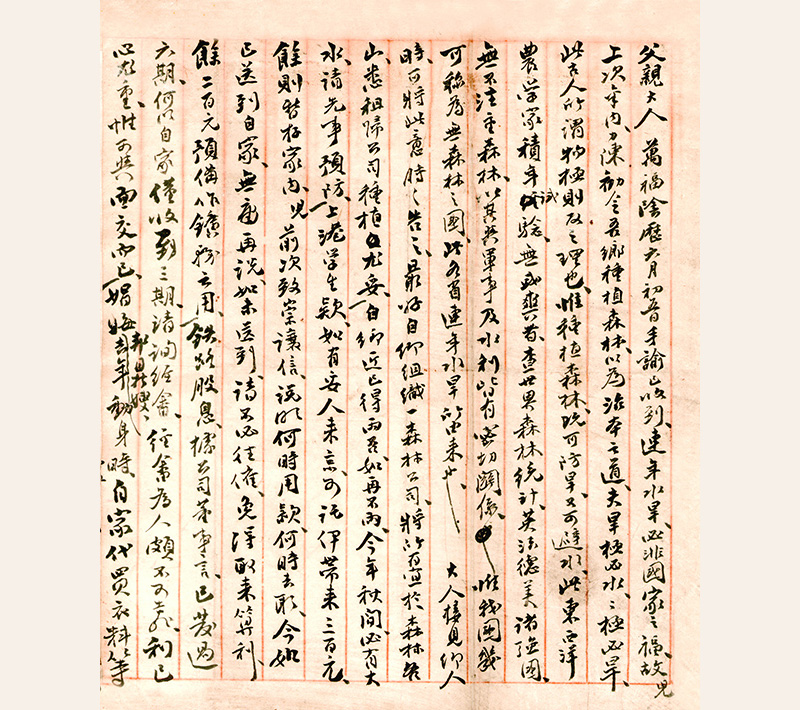 父親大人 萬福陰歷六月初晋手諭已收到、連年水旱、必非國家之福、故兒
上次年內力陳初令吾鄉種植森林、以為治本之道、夫旱極必水、水極必旱、
此古人所謂物極則反之理也、惟種植森林、既可防旱、又可避水、此東西洋
農学家積年試驗、無或爽者、查世界森林統計、英法德美諸強國、
無不注重森林、以其與軍事及水利皆有密切關係、惟我國幾
可稱為無森林之國、此各省連年水旱所由来也、 大人接見鄉人
時可將此意時時告之、最好自鄉組織一森林公司、將所有宜於森林各
山悉租歸公司種植、自尤妥、自鄉近已得雨否、如再不雨、今年秋間必有大
水、請先事預防、上港学生款、如有妥人来京、可託伊帶来三百元、
餘則暫存家內、兒前次致崇讓信、說明何時用款、何時去取、今如
已送到自家、無庸再說、如未送到、請不必往催、免得取来算利、
餘二百元預備作鑛務之用、鉄路股息、據公司董事言、已發過
六期、何以自家僅收到三期、請詢經畬、經畬為人頗不可靠、利己
心尤重、惟可與面交而已、娟娒邦昇嫂去年動身時、自家代買衣料等